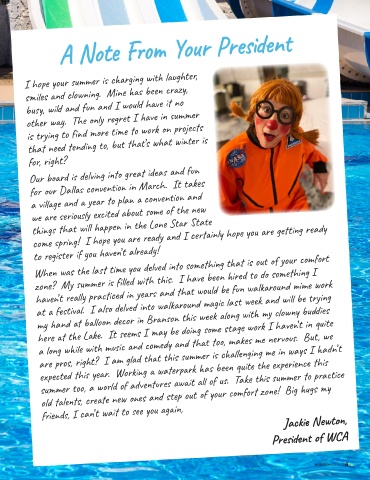 A Note From Your President
I hope your summer is charging with laughter,
smiles and clowning. Mine has been crazy,
busy, wild and fun and I would have it no
other way. The only regret I have in summer
is trying to find more time to work on projects
that need tending to, but that's what winter is
for, right?
Our board is delving into great ideas and fun
for our Dallas convention in March. It takes
a village and a year to plan a convention and
we are seriously excited about some of the new
things that will happen in the Lone Star State
come spring! I hope you are ready and I certainly hope you are getting ready
to register if you haven't already!
When was the last time you delved into something that is out of your comfort
zone? My summer is filled with this. I have been hired to do something I
haven't really practiced in years and that would be fun walkaround mime work
at a festival. I also delved into walkaround magic last week and will be trying
my hand at balloon decor in Branson this week along with my clowny buddies
here at the Lake. It seems I may be doing some stage work I haven't in quite
a long while with music and comedy and that too, makes me nervous. But, we
are pros, right? I am glad that this summer is challenging me in ways I hadn't
expected this year. Working a waterpark has been quite the experience this
summer too, a world of adventures await all of us. Take this summer to practice
old talents, create new ones and step out of your comfort zone! Big hugs my
friends, I can't wait to see you again,
Jackie Newton,
President of WCA
NASA